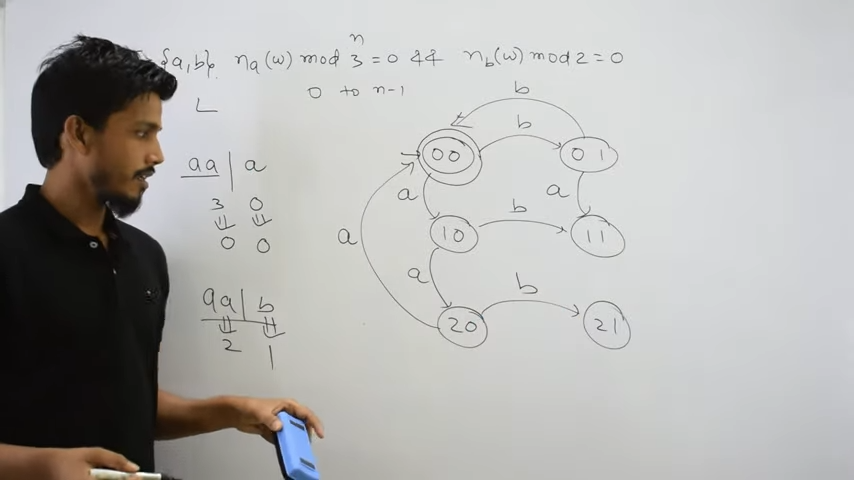 {a,b} na(w) mod 3 = 0 && nb(w) mod 2 = 0
n
0 to n-1
L
aa | a
3 0
0 0
aa | b
2 1
b
b
00 01
a a
b
10 11
a
a
b
20 21